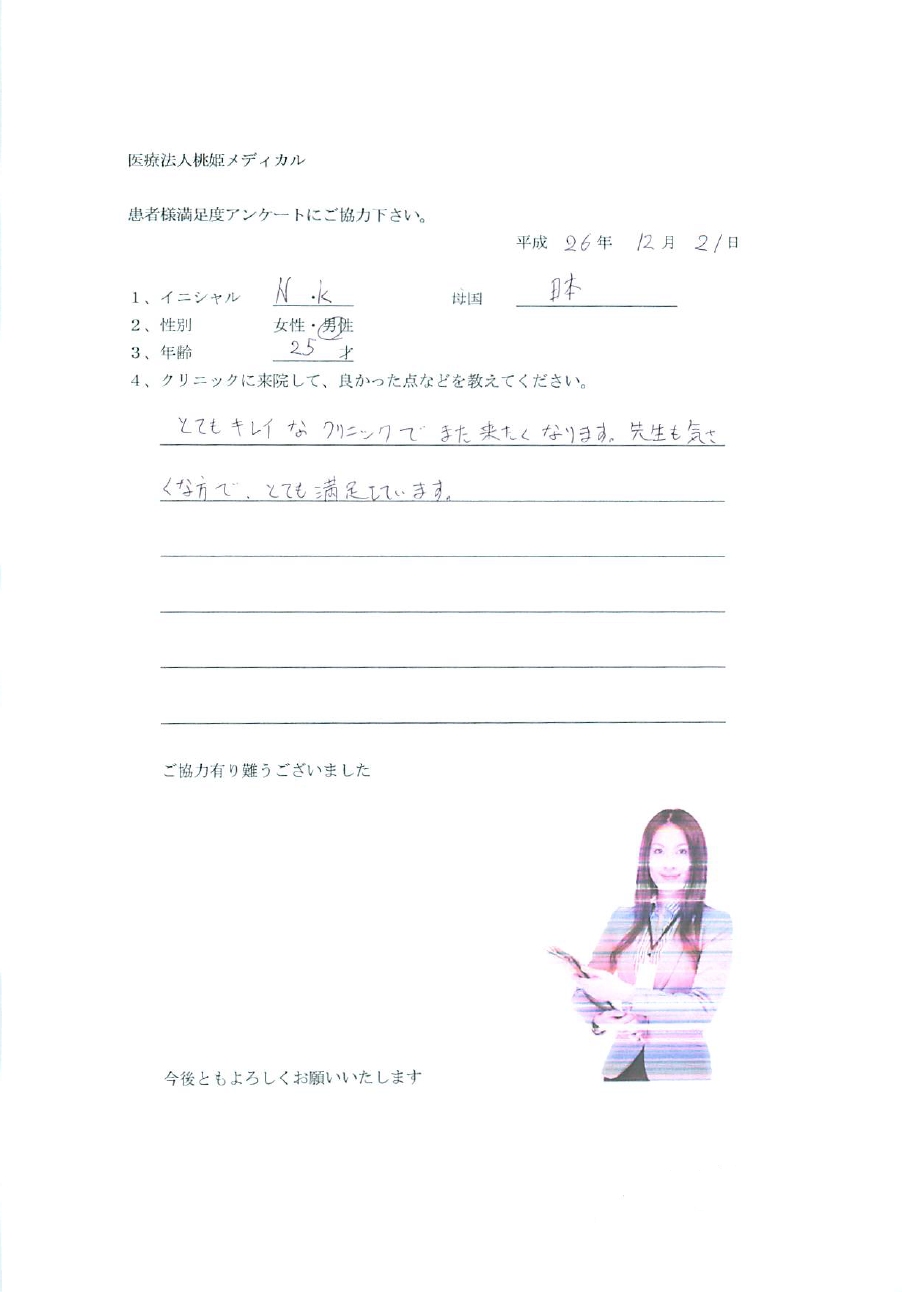 医療法人桃姫メディカル
患者様満足度アンケートにご協力下さい。
平成 26年 12月 21日
1、イニシャル N.K 母国 日本
2、性別 女性・男性
3、年齢 25 才
4、クリニックに来院して、良かった点などを教えてください。
とてもキレイなクリニックでまた来たくなります。先生も気さ
くな方で、とても満足しています。
ご協力有り難うございました
今後ともよろしくお願いいたします